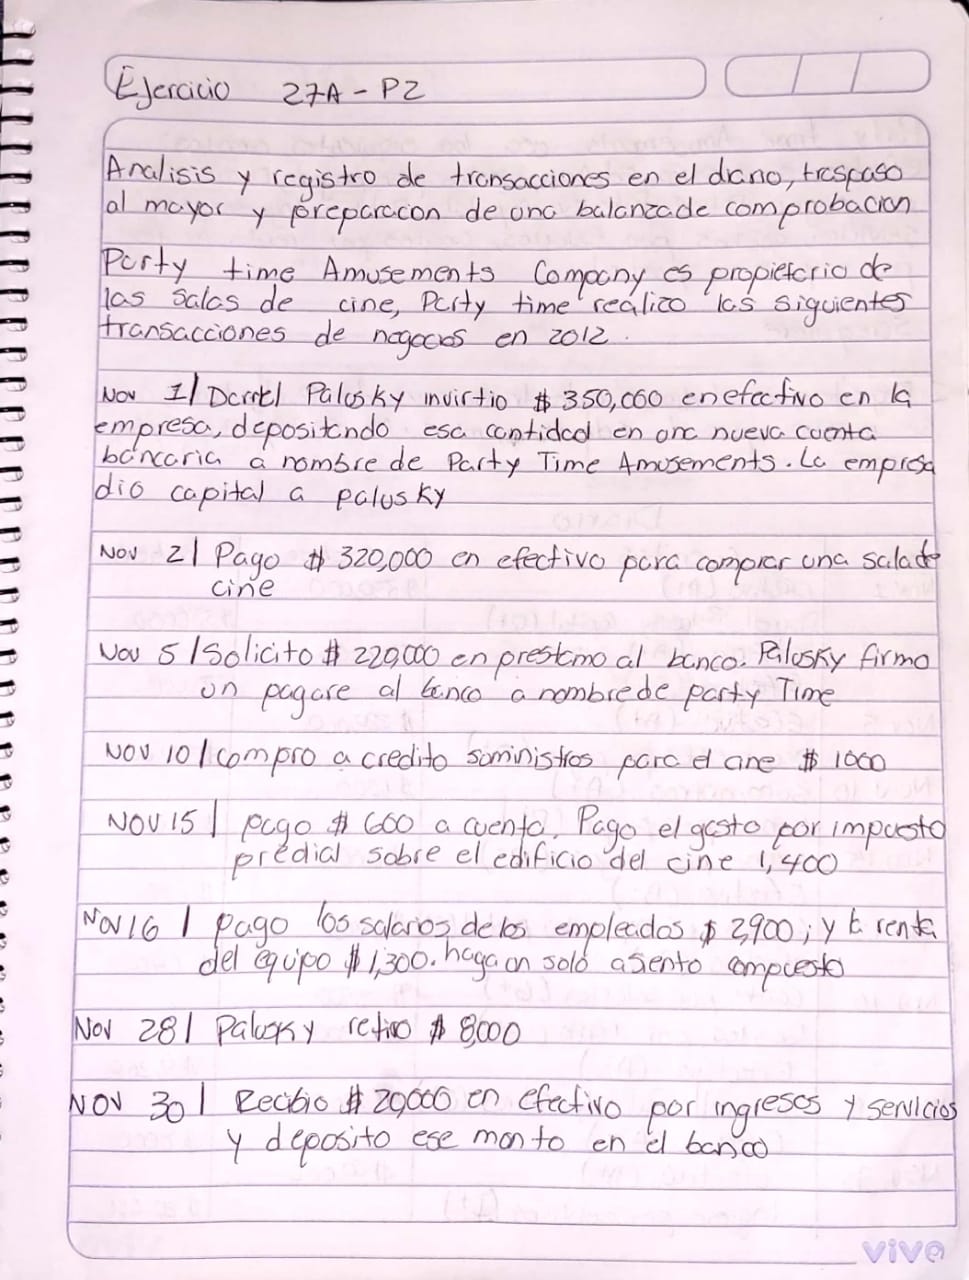 Ejercicio 27A - P2
Analisis y registro de transacciones en el diario, traspaso
al mayor y preparacion de una balanza de comprobacion
Party time Amusements Company es propietario de
las salas de cine, Party time realizo las siguientes
transacciones de negocios en 2012.
Nov 1/ Darrel Palusky invirtio $ 350,000 en efectivo en la
empresa, depositando esa cantidad en una nueva cuenta
bancaria a nombre de Party Time Amusements. La empresa
dio capital a palusky
Nov 2/ Pago $ 320,000 en efectivo para comprar una sala de
cine
Nov 5 / Solicito $ 220,000 en prestamo al banco. Palusky firmo
un pagare al banco a nombre de party Time
NOV 10 / compro a credito suministros para el cine $ 1000
NOV 15 / pago $ 600 a cuenta. Pago el gasto por impuesto
predial sobre el edificio del cine 1,400
Nov 16 / pago los salarios de los empleados $ 2,900; y la renta
del equipo $ 1,300. haga un solo asiento compuesto
Nov 28 / Palusky retiro $ 8,000
NOV 30 / Recibio $ 20,000 en efectivo por ingresos y servicios
y deposito ese monto en el banco
vivo